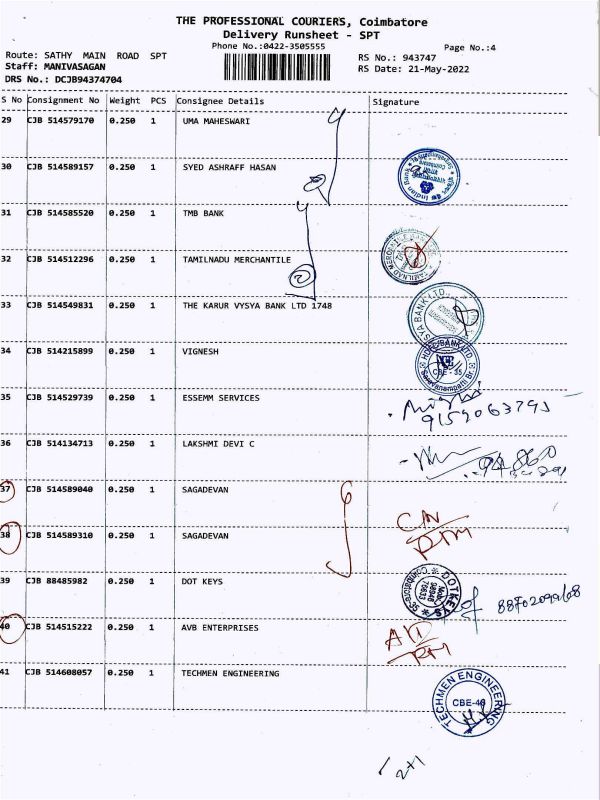 THE PROFESSIONAL COURIERS, Coimbatore
Delivery Runsheet - SPT
Phone No.:0422-3505555
Page No.:4
Route: SATHY MAIN ROAD SPT
RS No.: 943747
Staff: MANIVASAGAN
RS Date: 21-May-2022
DRS No.: DCJB94374704
S No Consignment No Weight PCS Consignee Details Signature
29 CJB 514579170 0.250 1 UMA MAHESWARI
30 CJB 514589157 0.250 1 SYED ASHRAFF HASAN
Indian
31 CJB 514585520 0.250 1 TMB BANK
32 CJB 514512296 0.250 1 TAMILNADU MERCHANTILE
TAMILNAD MERCANTILE
33 CJB 514549831 0.250 1 THE KARUR VYSYA BANK LTD 1748
VYSYA BANK LTD.
34 CJB 514215899 0.250 1 VIGNESH
HDFC BANK LTD
CBE - 35
Saravanampatti Br.
35 CJB 514529739 0.250 1 ESSEMM SERVICES
36 CJB 514134713 0.250 1 LAKSHMI DEVI C
37 CJB 514589040 0.250 1 SAGADEVAN
38 CJB 514589310 0.250 1 SAGADEVAN
39 CJB 88485982 0.250 1 DOT KEYS
DOTKEYS
40 CJB 514515222 0.250 1 AVB ENTERPRISES
41 CJB 514608057 0.250 1 TECHMEN ENGINEERING
TECHMEN ENGINEERING
2+1